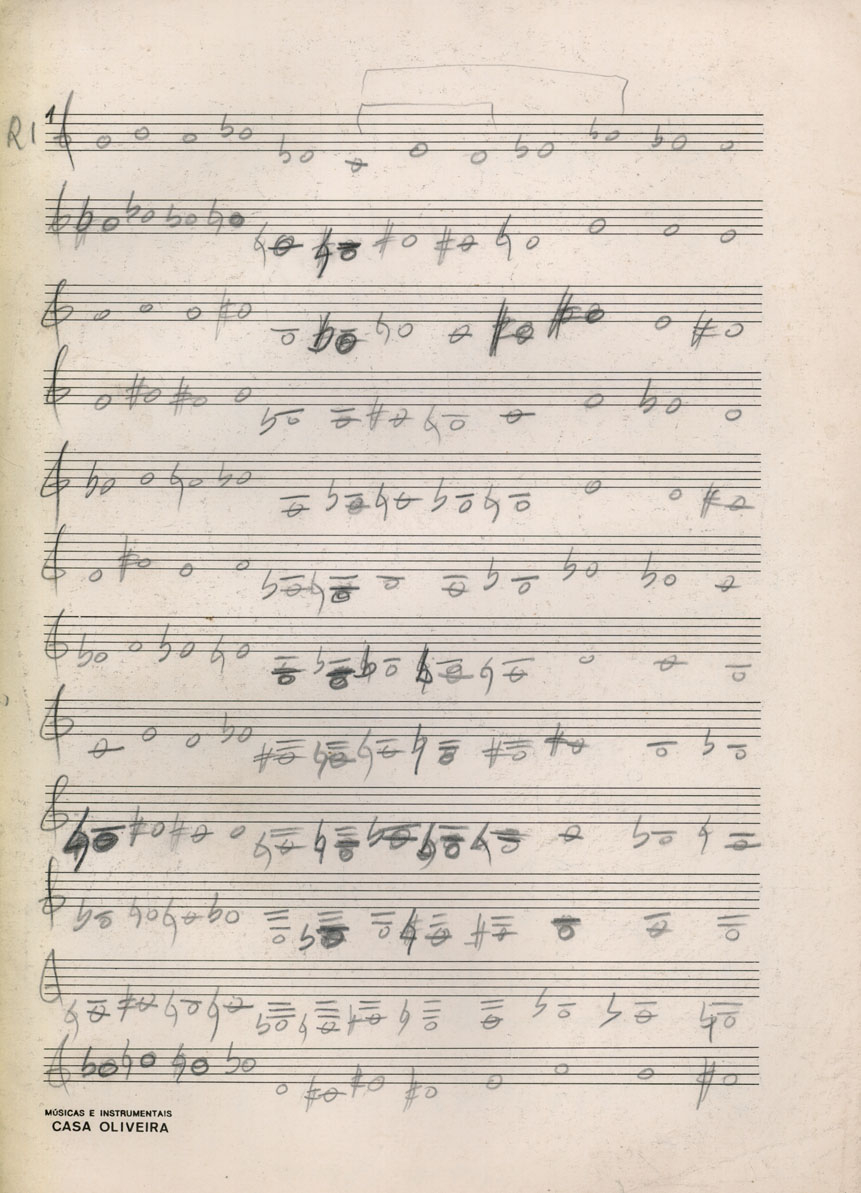 R1
1
MÚSICAS E INSTRUMENTAIS
CASA OLIVEIRA